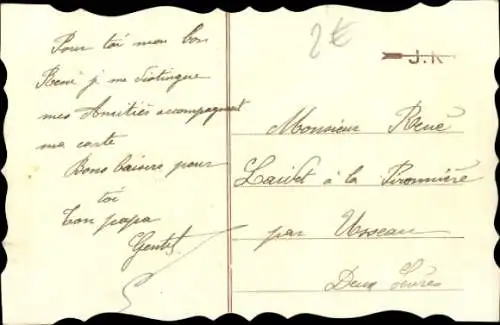 Pour toi mon bon
René je me distingue
mes Amitiés accompagnent
ma carte
Bons baisers pour
toi
Ton papa
Gentet
2€
J.K
Monsieur René
à la Pironnière
par Usseau
Deux Sèvres